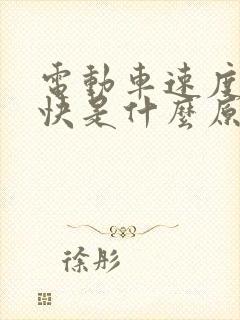 電動車速度
快是什麼原
徐彤